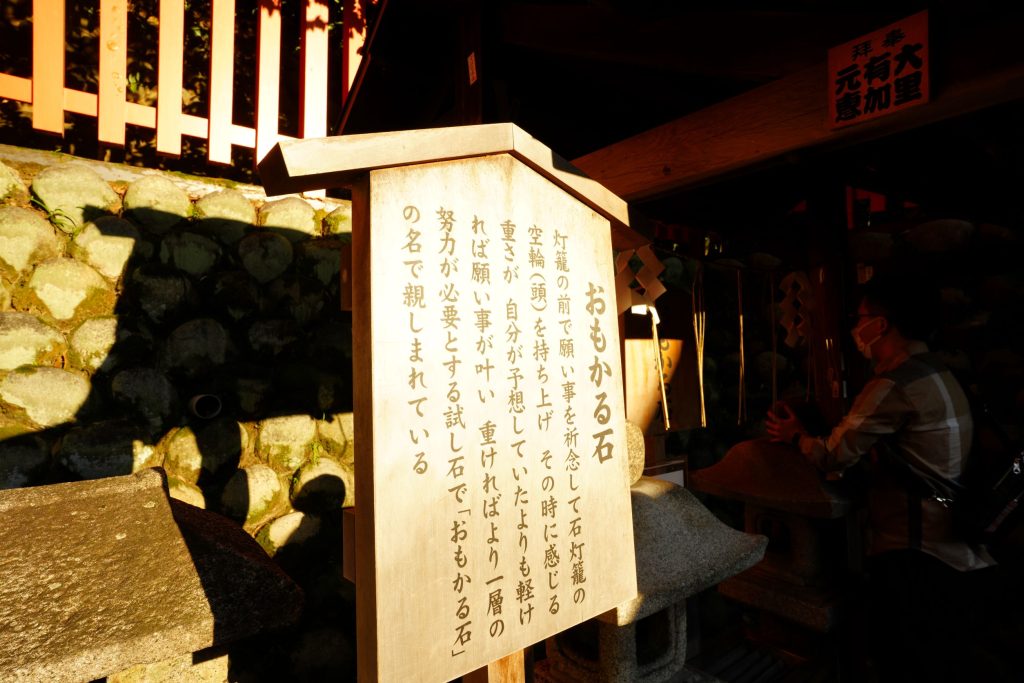 おもかる石
灯籠の前で願い事を祈念して石灯籠の
空輪(頭)を持ち上げ その時に感じる
重さが 自分が予想していたよりも軽け
れば願い事が叶い 重ければより一層の
努力が必要とする試し石で「おもかる石」
の名で親しまれている
奉拝
大里
有加
元恵